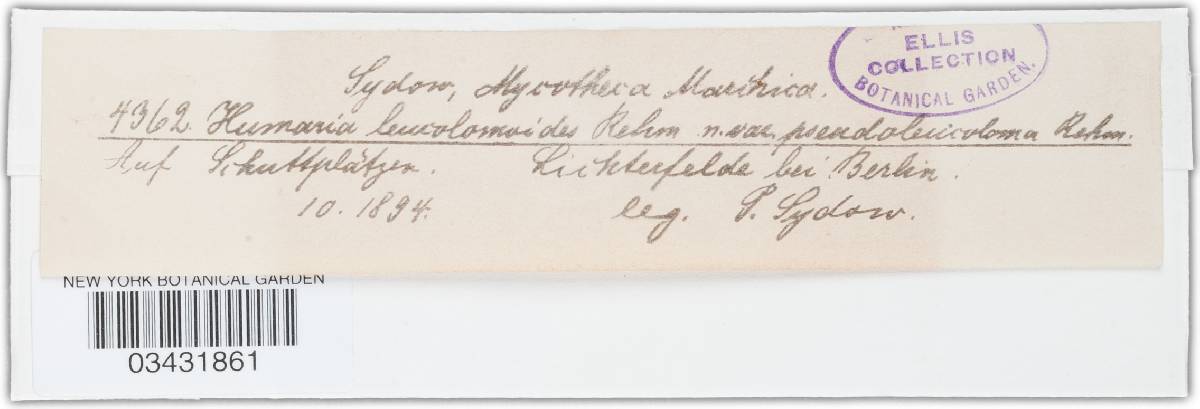 ELLIS
COLLECTION
BOTANICAL GARDEN.
Sydow, Mycotheca Marchica.
4362 Humaria leucolomoides Rehm n. var. pseudoleucoloma Rehm.
Auf Schuttplätzen. Lichterfelde bei Berlin.
10. 1894. leg. P. Sydow.
NEW YORK BOTANICAL GARDEN
03431861